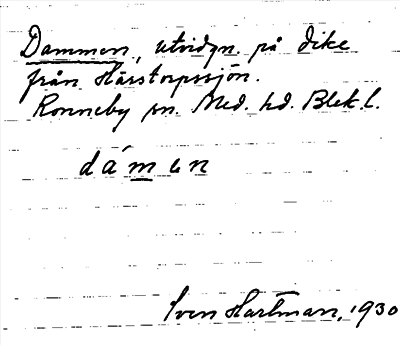 Dammen, utvidgn. på dike
från Härstorpssjön.
Ronneby sn. Med. hd. Blek. l.
dámen
Sven Hartman, 1930